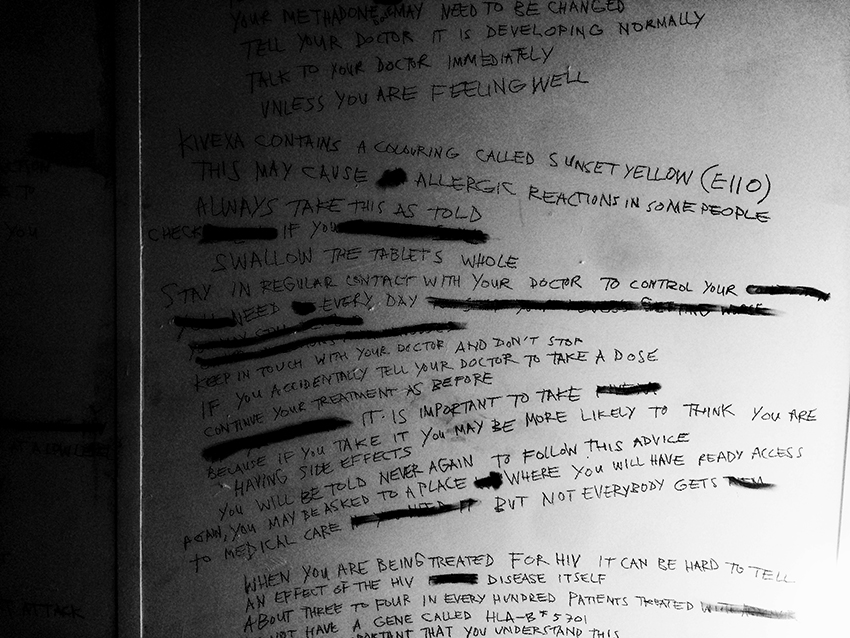 YOUR METHADONE MAY NEED TO BE CHANGED
TELL YOUR DOCTOR IT IS DEVELOPING NORMALLY
TALK TO YOUR DOCTOR IMMEDIATELY
UNLESS YOU ARE FEELING WELL
KIVEXA CONTAINS A COLOURING CALLED SUNSET YELLOW (E110)
THIS MAY CAUSE ALLERGIC REACTIONS IN SOME PEOPLE
ALWAYS TAKE THIS AS TOLD
CHECK IF YOU
SWALLOW THE TABLETS WHOLE
STAY IN REGULAR CONTACT WITH YOUR DOCTOR TO CONTROL YOUR
NEED EVERY DAY
KEEP IN TOUCH WITH YOUR DOCTOR AND DON'T STOP
IF YOU ACCIDENTALLY TELL YOUR DOCTOR TO TAKE A DOSE
CONTINUE YOUR TREATMENT AS BEFORE
IT IS IMPORTANT TO TAKE
BECAUSE IF YOU TAKE IT YOU MAY BE MORE LIKELY TO THINK YOU ARE
HAVING SIDE EFFECTS
YOU WILL BE TOLD NEVER AGAIN TO FOLLOW THIS ADVICE
AGAIN, YOU MAY BE ASKED TO A PLACE WHERE YOU WILL HAVE READY ACCESS
TO MEDICAL CARE BUT NOT EVERYBODY GETS
WHEN YOU ARE BEING TREATED FOR HIV IT CAN BE HARD TO TELL
AN EFFECT OF THE HIV DISEASE ITSELF
ABOUT THREE TO FOUR IN EVERY HUNDRED PATIENTS TREATED
NOT HAVE A GENE CALLED HLA-B*5701
THAT YOU UNDERSTAND THIS
YOU
ATTACK